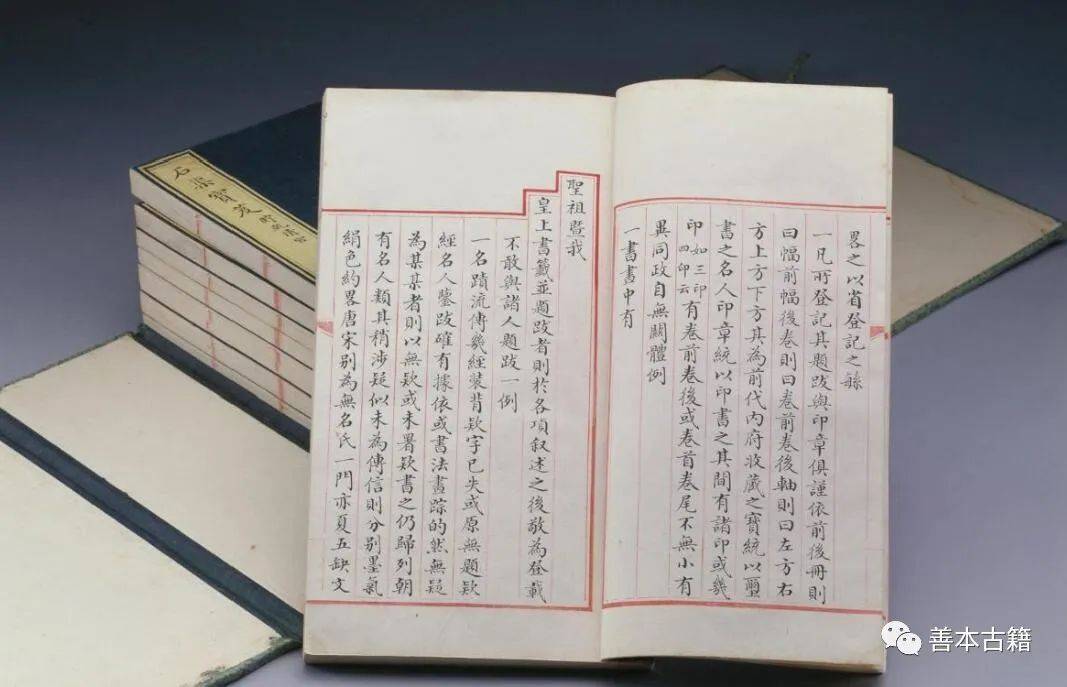 畧之以省登記之䌓
一凡所登記其題跋與印章俱謹依前後冊則
曰幅前幅後卷則曰卷前卷後軸則曰左方右
方上方下方其為前代内府收藏之寶統以璽
書之名人印章統以印書之其間有諸印或幾
印如三印四印云有卷前卷後或卷首卷尾不無小有
異同政自無關體例
一書畫中有
聖祖暨我
皇上書籤並題跋者則於各項叙述之後敬為登載
不敢與諸人題跋一例
一名蹟流傳幾經裝背欵字已失或原無題欵
經名人鑒跋確有據依或書法畫踪的然無疑
為某某者則以無欵或未署欵書之仍歸列朝
有名人類其稍涉疑似未為傳信則分别墨氣
絹色約畧唐宋别為無名氏一門亦夏五缺文
石渠寳笈
善本古籍